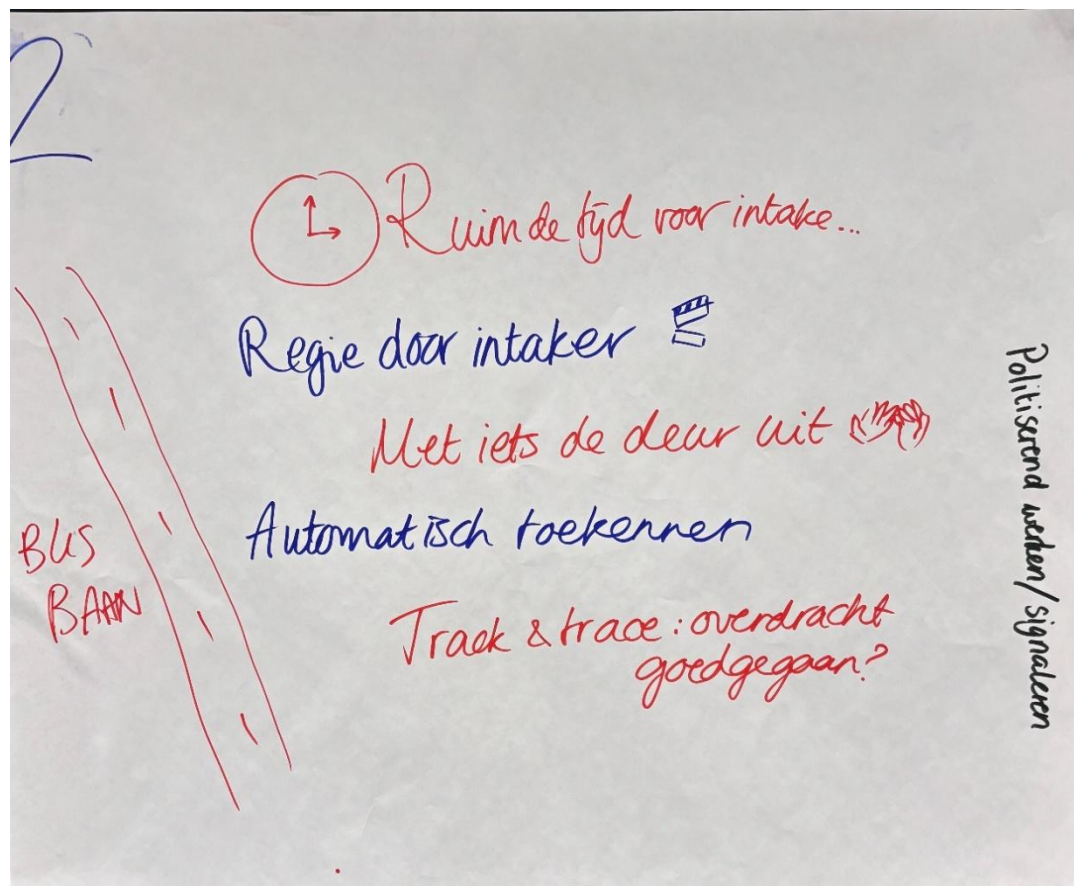 2
Ruimde tijd voor intake...
Regie door intaker
Met iets de deur uit
Automatisch toekennen
Track & trace: overdracht
goedgegaan?
BUS
BAAN
Politiserend werken/signaleren